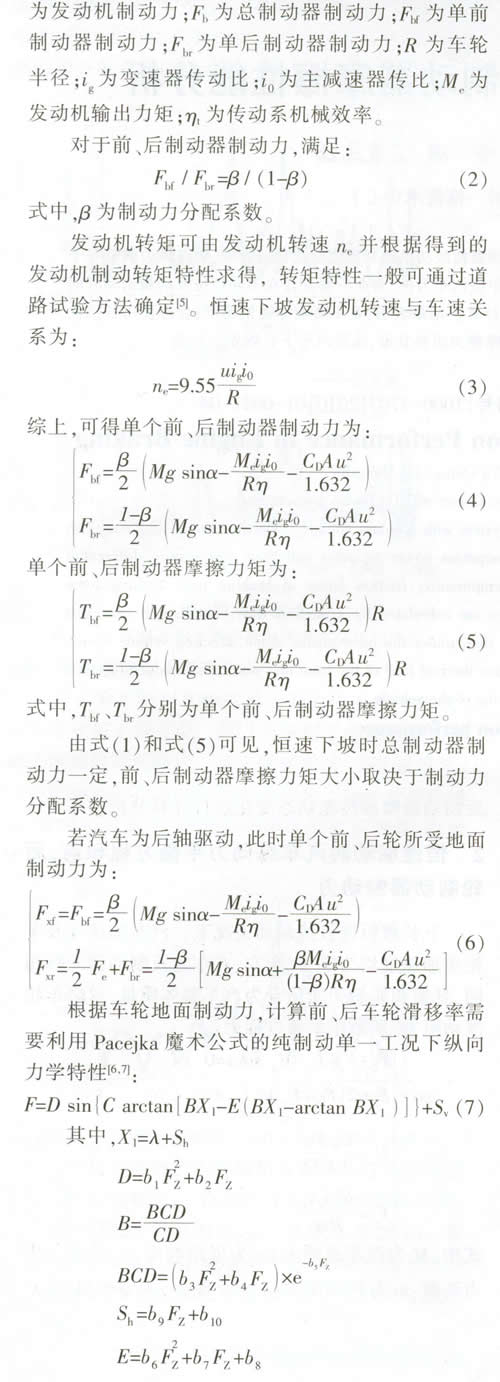 为发动机制动力;F_b为总制动器制动力;F_bf为单前
制动器制动力;F_br为单后制动器制动力;R为车轮
半径;i_g为变速器传动比;i_0为主减速器传比;M_e为
发动机输出力矩;η_t为传动系机械效率。
对于前、后制动器制动力,满足:
F_bf / F_br=β / (1-β) (2)
式中,β为制动力分配系数。
发动机转矩可由发动机转速 n_e 并根据得到的
发动机制动转矩特性求得, 转矩特性一般可通过道
路试验方法确定[5]。恒速下坡发动机转速与车速关
系为:
n_e=9.55 ui_g i_0 / R (3)
综上,可得单个前、后制动器制动力为:
F_bf = β/2 (Mg sinα - M_e i_g i_0 / Rη - C_D A u^2 / 1.632)
F_br = 1-β/2 (Mg sinα - M_e i_g i_0 / Rη - C_D A u^2 / 1.632) (4)
单个前、后制动器摩擦力矩为:
T_bf = β/2 (Mg sinα - M_e i_g i_0 / Rη - C_D A u^2 / 1.632) R
T_br = 1-β/2 (Mg sinα - M_e i_g i_0 / Rη - C_D A u^2 / 1.632) R (5)
式中,T_bf、T_br分别为单个前、后制动器摩擦力矩。
由式(1)和式(5)可见,恒速下坡时总制动器制
动力一定,前、后制动器摩擦力矩大小取决于制动力
分配系数。
若汽车为后轴驱动,此时单个前、后轮所受地面
制动力为:
F_xf = F_bf = β/2 (Mg sinα - M_e i_g i_0 / Rη - C_D A u^2 / 1.632)
F_xr = 1/2 F_e + F_br = 1-β/2 [Mg sinα + βM_e i_g i_0 / (1-β)Rη - C_D A u^2 / 1.632] (6)
根据车轮地面制动力,计算前、后车轮滑移率需
要利用 Pacejka 魔术公式的纯制动单一工况下纵向
力学特性[6,7]:
F=D sin{C arctan[BX_1-E(BX_1-arctan BX_1)]}+S_v (7)
其中,X_1=λ+S_h
D=b_1 F_Z^2+b_2 F_Z
B=BCD / CD
BCD=(b_3 F_Z^2+b_4 F_Z)×e^{-b_5 F_Z}
S_h=b_9 F_Z+b_10
E=b_6 F_Z^2+b_7 F_Z+b_8